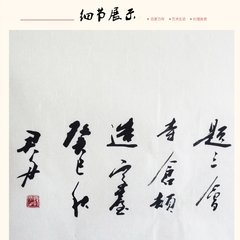 细节展示
题三会
寺仓颉
造字台
癸巳秋
君丹